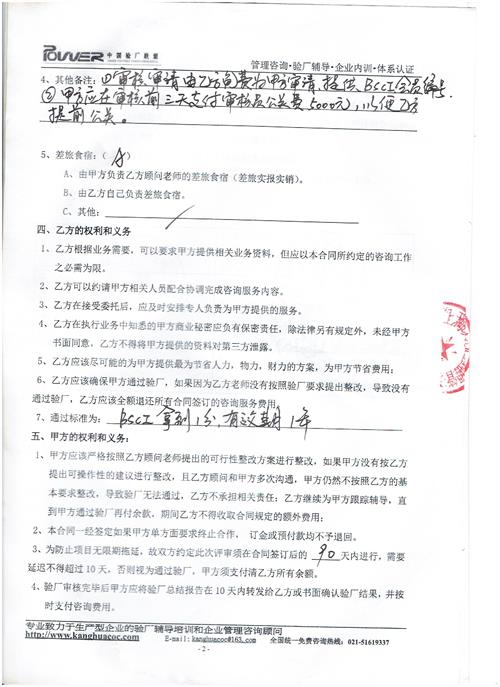 POWER 中国验厂联盟
管理咨询·验厂辅导·企业内训·体系认证
4、其他备注:①审核申请由乙方免费为甲方申请,提供BSCI会员编号.
②甲方应在审核前三天支付审核员公关费5000元,以便乙方
提前公关。
5、差旅食宿:( A )
A、由甲方负责乙方顾问老师的差旅食宿(差旅实报实销)。
B、由乙方自己负责差旅食宿。
C、其他:
四、乙方的权利和义务
1、乙方根据业务需要,可以要求甲方提供相关业务资料,但应以本合同所约定的咨询工作
之必需为限。
2、乙方可以约请甲方相关人员配合协调完成咨询服务内容。
3、乙方在接受委托后,应及时安排专人负责为甲方提供的服务。
4、乙方在执行业务中知悉的甲方商业秘密应负有保密责任,除法律另有规定外,未经甲方
书面同意,乙方不得将甲方提供的资料对第三方泄露。
5、乙方应该尽可能的为甲方提供最为节省人力,物力,财力的方案,为甲方节省费用;
6、乙方应该确保甲方通过验厂,如果因为乙方老师没有按照验厂要求提出整改,导致没有
通过验厂,乙方应该全额退还所有合同签订的咨询服务费用。
7、通过标准为:BSCI 拿到1份,有效期1年
五、甲方的权利和义务:
1、甲方应该严格按照乙方顾问老师提出的可行性整改方案进行整改,如果甲方没有按乙方
提出可操作性的建议进行整改,且乙方顾问和甲方多次沟通,甲方仍然不按照乙方的基
本要求整改,导致验厂无法通过,乙方不承担相关责任;乙方继续为甲方跟踪辅导,直
到甲方通过验厂再付余款,期间乙方不得收取合同规定的额外费用;
2、本合同一经签定如果甲方单方面要求终止合作,订金或预付款均不予退回。
3、为防止项目无限期拖延,故双方约定此次评审须在合同签订后的 90 天内进行,需要
延迟不得超过10天,否则视为通过验厂,甲方须支付清乙方所有余额。
4、验厂审核完毕后甲方应将验厂总结报告在10天内转发给乙方或书面确认验厂结果,并按
时支付咨询费用。
专业致力于生产型企业的验厂辅导培训和企业管理咨询顾问
http://www.kanghuacoc.com E-mail: kanghuacoc@163.com 全国统一免费咨询热线: 021-51619337
-2-